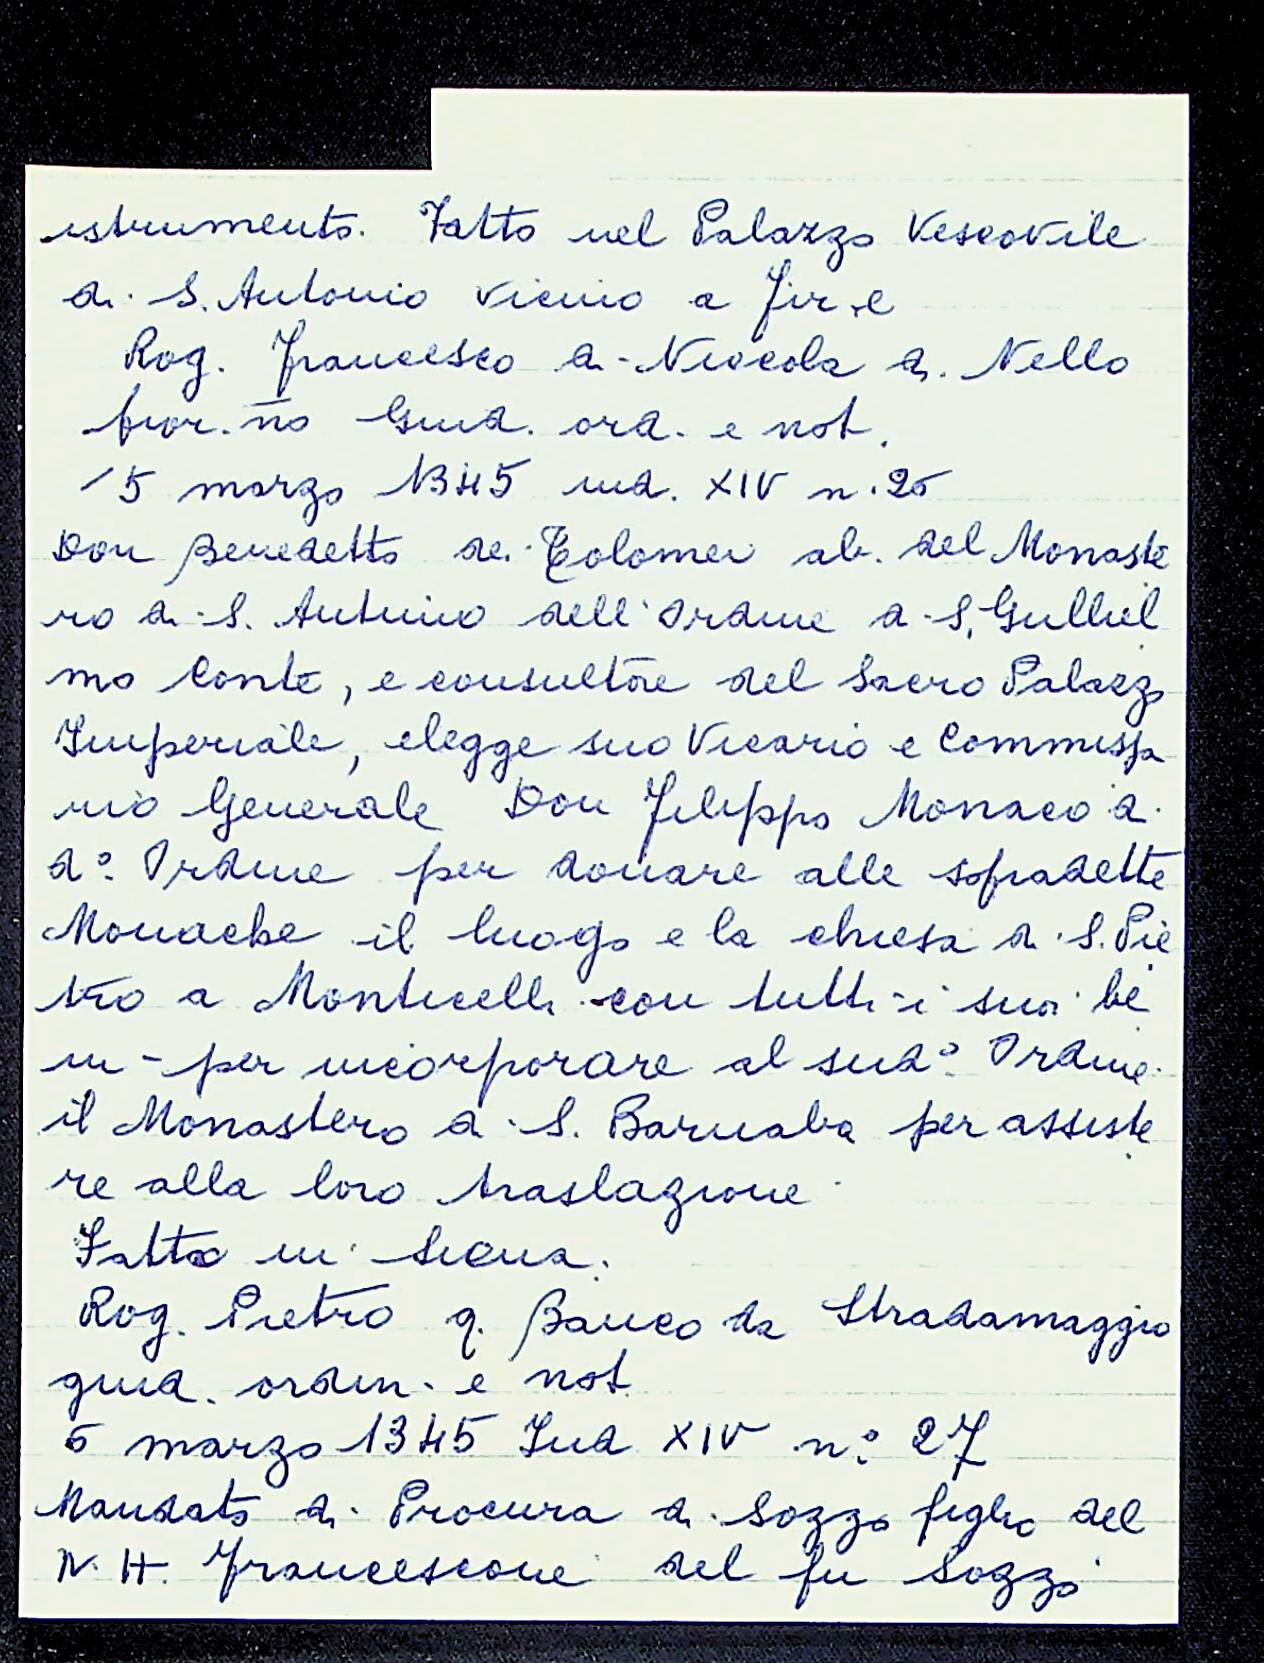 istrumento. Fatto nel Palazzo Vescovile
di S. Antonio vicino a Fir.e
Rog. Francesco di Niccola di Nello
fior.no Giud. ord. e not.
15 marzo 1345 ind. XIV n. 26
Don Benedetto dei Tolomei ab. del Monaste
ro di S. Antonino dell'Ordine di S. Gulliel
mo Conte, e consultore del Sacro Palazzo
Imperiale, elegge suo Vicario e Commissa
rio Generale Don Filippo Monaco di
do. Ordine per donare alle sopradette
Monache il luogo e la chiesa di S. Pie
tro a Monticelli con tutti i suoi be
ni - per incorporare al sudo. Ordine
il Monastero di S. Barnaba per assiste
re alla loro traslazione
Fatto in Siena.
Rog. Pietro q. Banco da Stradamaggio
giud. ordin. e not
6 marzo 1345 Ind XIV no. 27
Mandato di Procura di Sozzo figlio del
N. H. Francescone del fu Sozzo